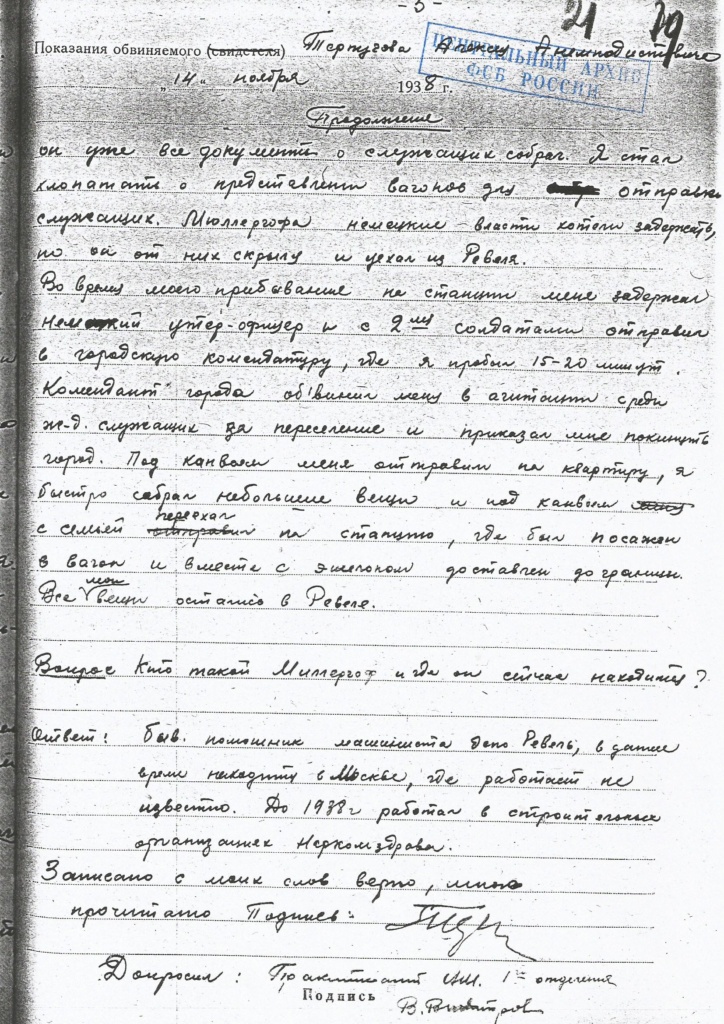 - 5 -
21 79
Показания обвиняемого (свидетеля) Терпугова Алексея Анемподистовича
ЦЕНТРАЛЬНЫЙ АРХИВ
ФСБ РОССИИ
„14“ ноября 1938 г.
Продолжение
он уже все документы о служащих собрал. Я стал
хлопатать о представлении вагонов для отправки
служащих. Мюллергофа немецкие власти хотели задержать,
но он от них скрылся и уехал из Ревеля.
Во время моего прибывания на станции меня задержал
немецкий унтер-офицер и с 2мя солдатами отправил
в городскую комендатуру, где я пробыл 15-20 минут.
Комендант города об'винил меня в агитации среди
ж-д. служащих за переселение и приказал мне покинуть
город. Под канвоем меня отправили на квартиру, я
быстро собрал небольшие вещи и под канвоем
с семьей переехал на станцию, где был посажен
в вагон и вместе с эшелоном доставлен до границы.
Все мои вещи остались в Ревеле.
Вопрос Кто такой Миллергоф и где он сейчас находится?
Ответ: Быв. помошник машиниста депо Ревель, в данное
время находится в Москве, где работает не
известно. До 1938 г работал в строительных
организациях Наркомздрава.
Записано с моих слов верно, мною
прочитано Подпись:
Допросил: Практикант 1го отделения
Подпись